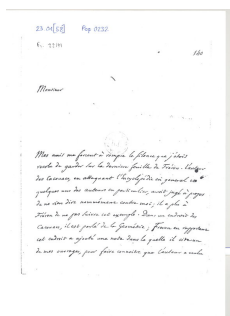 140
Monsieur
Mes amis me forcent à rompre le silence que j'étois
resolu de garder sur la derniere feuille de Freron. L'auteur
des Cacouacs, en attaquant l'Encyclopédie en general et
quelques uns des auteurs en particulier, avoit jugé à propos
de ne rien dire nommément contre moi; il a plu à
Freron de ne pas suivre cet exemple. Dans un endroit des
Cacouacs, il est parlé de la Geometrie; Freron en rapportant
cet endroit a ajouté une note dans la quelle il
de mes ouvrages, pour faire connoitre que l'auteur a voulu